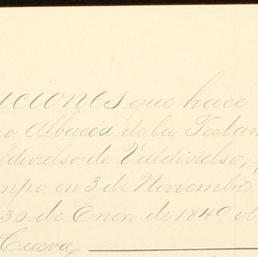 ciones que hace
Albacea de la Testam
de Valdivielso,
mpo en 3 de Noviembre
30 de Enero de 1849
Cueva